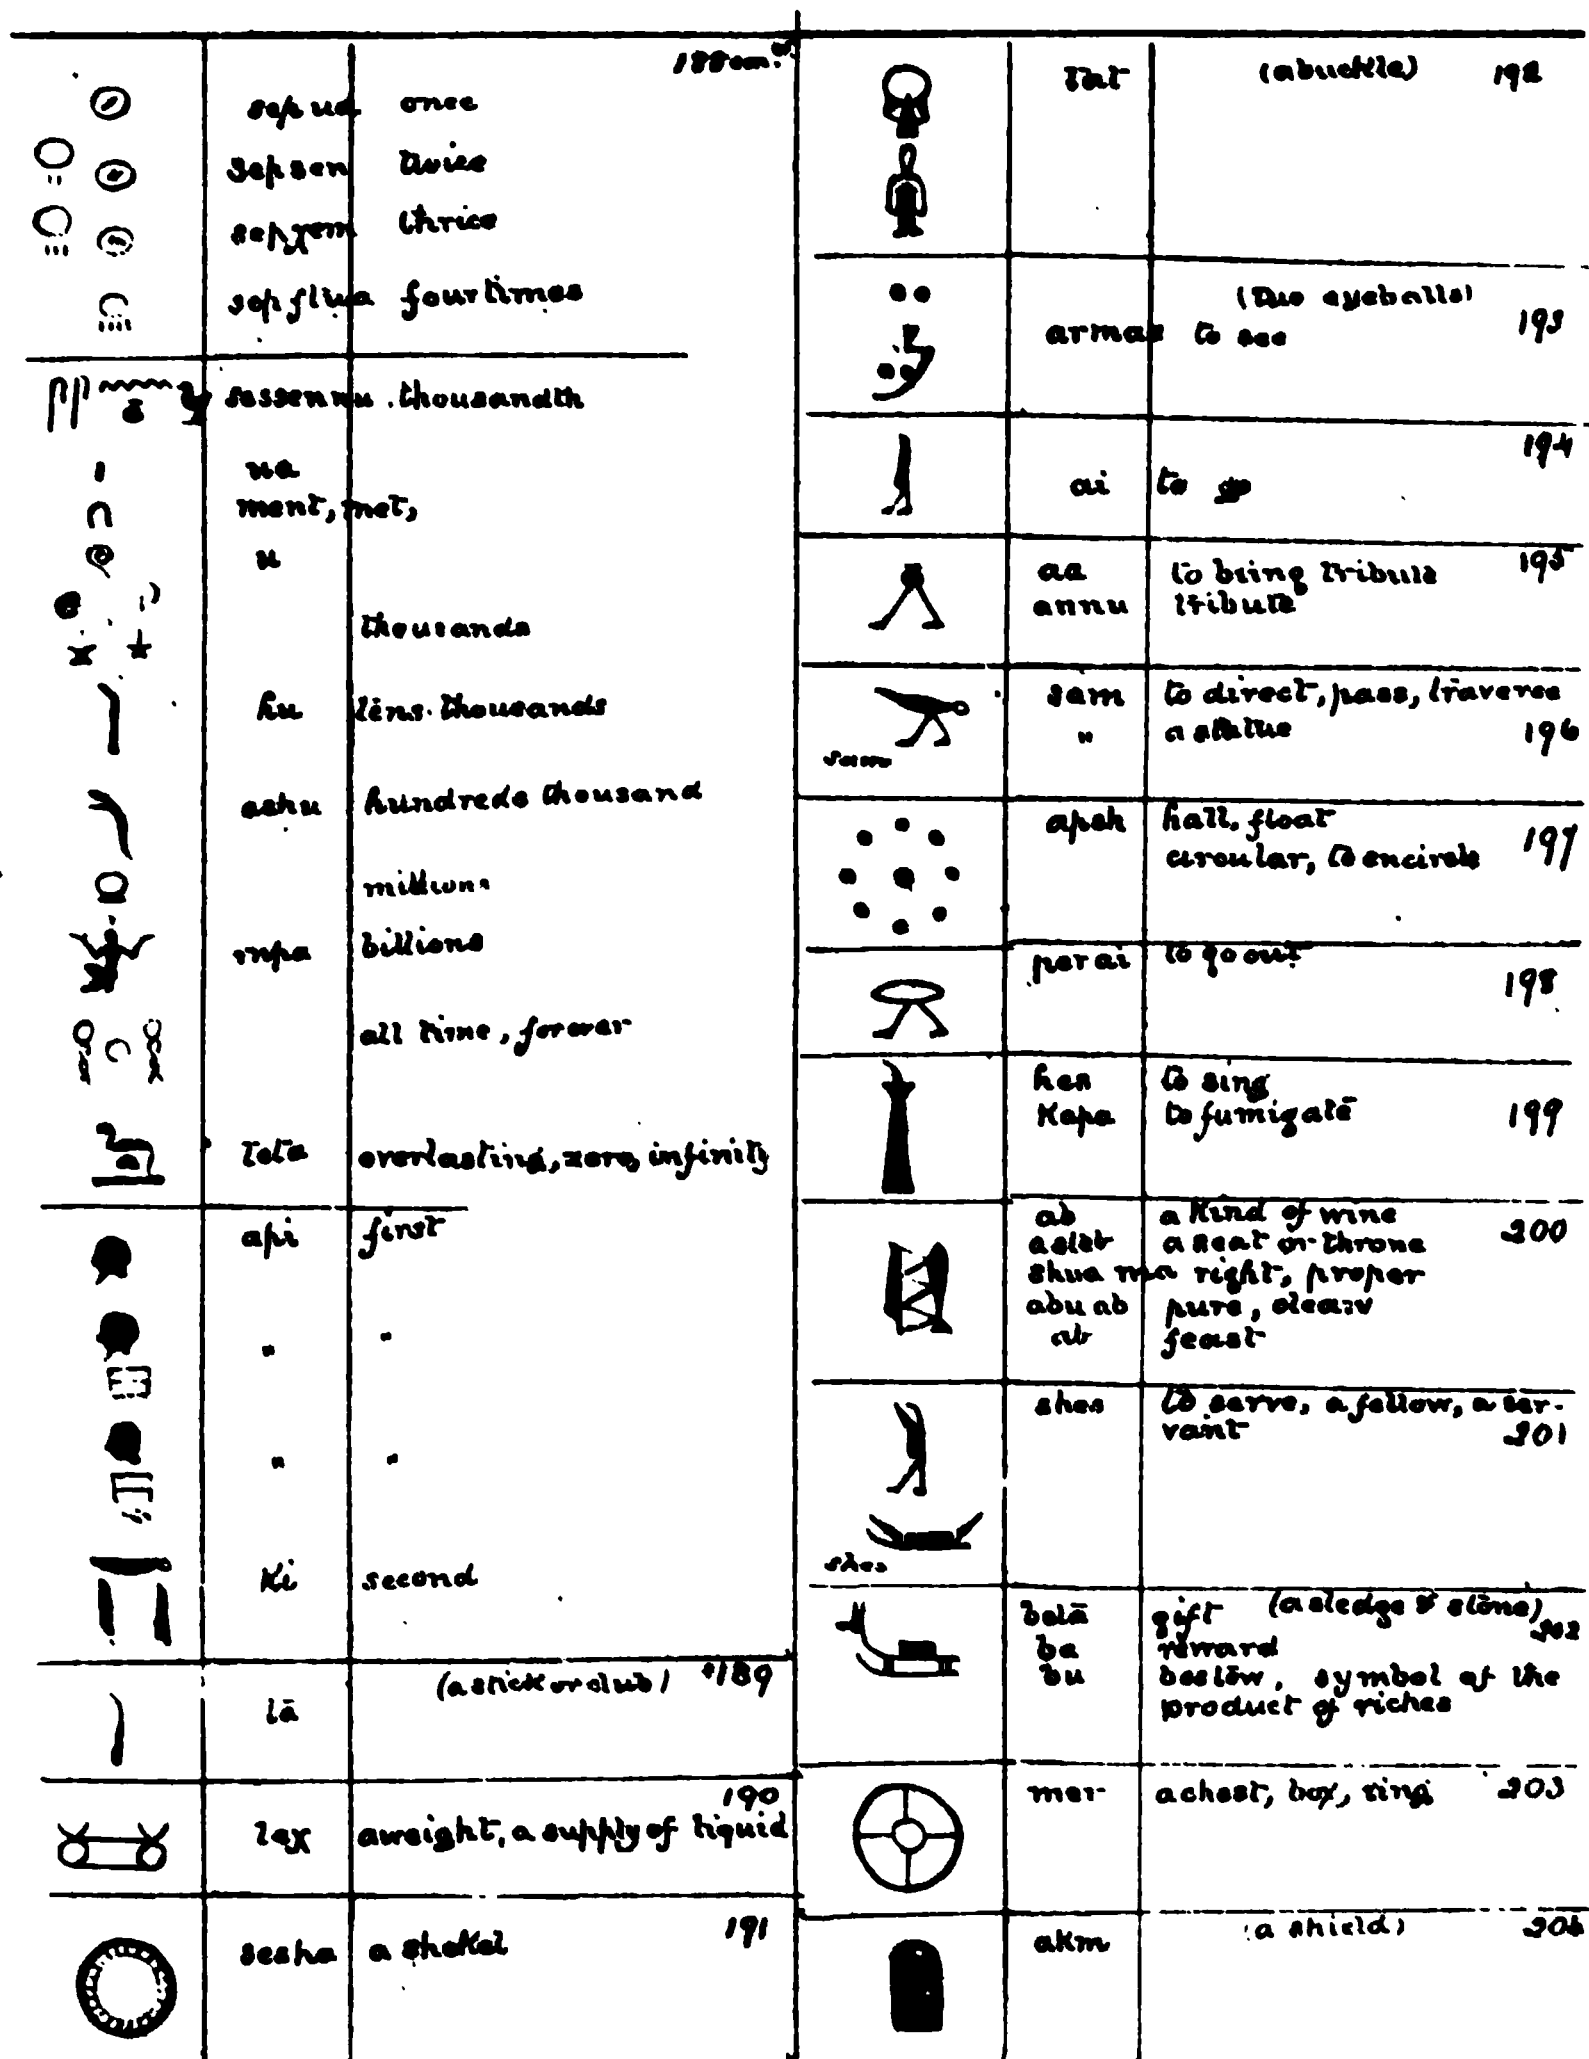 188
sep ua once
sep sen twice
sepχem thrice
sep flua four times
sessennu. thousandth
ua
ment, met,
u
thousands
hu tens. thousands
ashu hundreds thousand
millions
mpa billions
all time, forever
teta overlasting, zero, infinity
api first
" "
" "
Ki second
(a stick or club) 189
tā
190
teχ a weight, a supply of liquid
191
sesha a shekel
tat (a buckle) 192
(two eyeballs)
armaa to see 193
194
ai to go
aa to bring tribute 195
annu tribute
sam to direct, pass, traverse
" a statue 196
sam
apsh hall, float
circular, to encircle 197
per ai to go out
198
hes to sing
Kapa to fumigate 199
ab a kind of wine 200
asleb a seat or throne
shua ma right, proper
abu ab pure, clean
ab feast
shes to serve, a fellow, a ser-
vant 201
shes
betā gift (a sledge & stone) 202
be reward
bu bestow, symbol of the
product of riches
mer a chest, box, ring 203
akm (a shield) 204